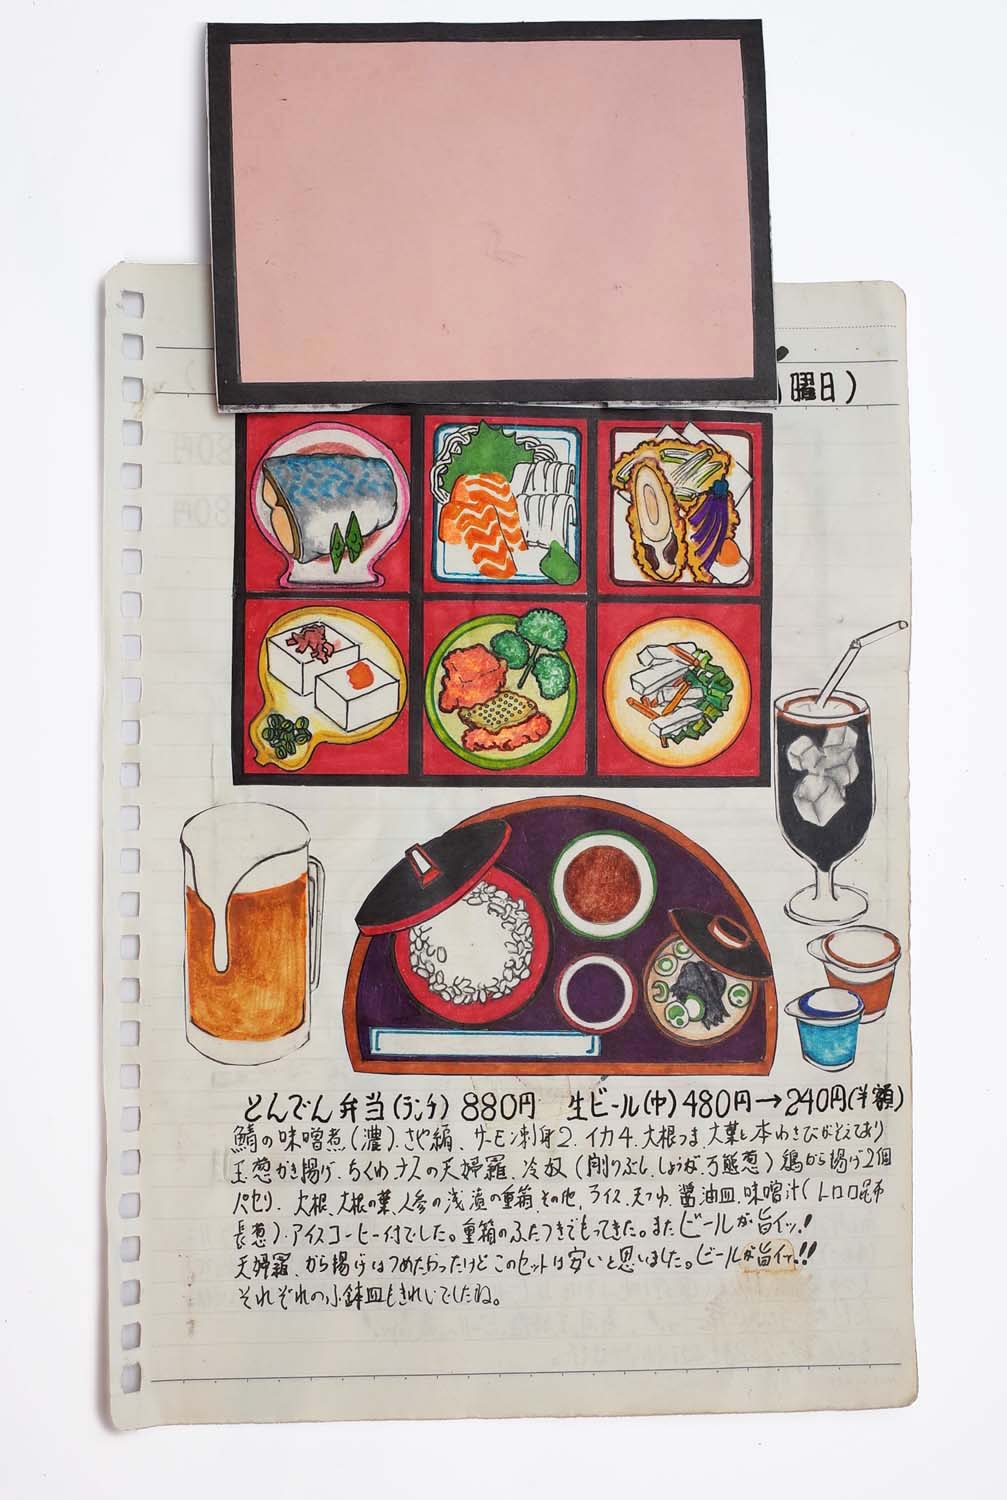 曜日)
とんでん弁当(ランチ) 880円 生ビール(中)480円→240円(半額)
鯖の味噌煮(濃)、さや編、サーモン刺身2、イカ4、大根つま、大葉と本わさびがそえてあり
玉葱かき揚げ、ちくわ、ナスの天婦羅、冷奴(削りぶし、しょうが、万能葱)鶏から揚げ2個
パセリ、大根、大根の葉、人参の浅漬の重箱、その他、ライス、天つゆ、醤油皿、味噌汁(トロロ昆布
長葱)、アイスコーヒー付でした。重箱のふたつきでもってきた。またビールが旨イッ!
天婦羅、から揚げはつめたかったけどこのセットは安いと思いました。ビールが旨イッ!!
それぞれの小鉢皿もきれいでしたね。